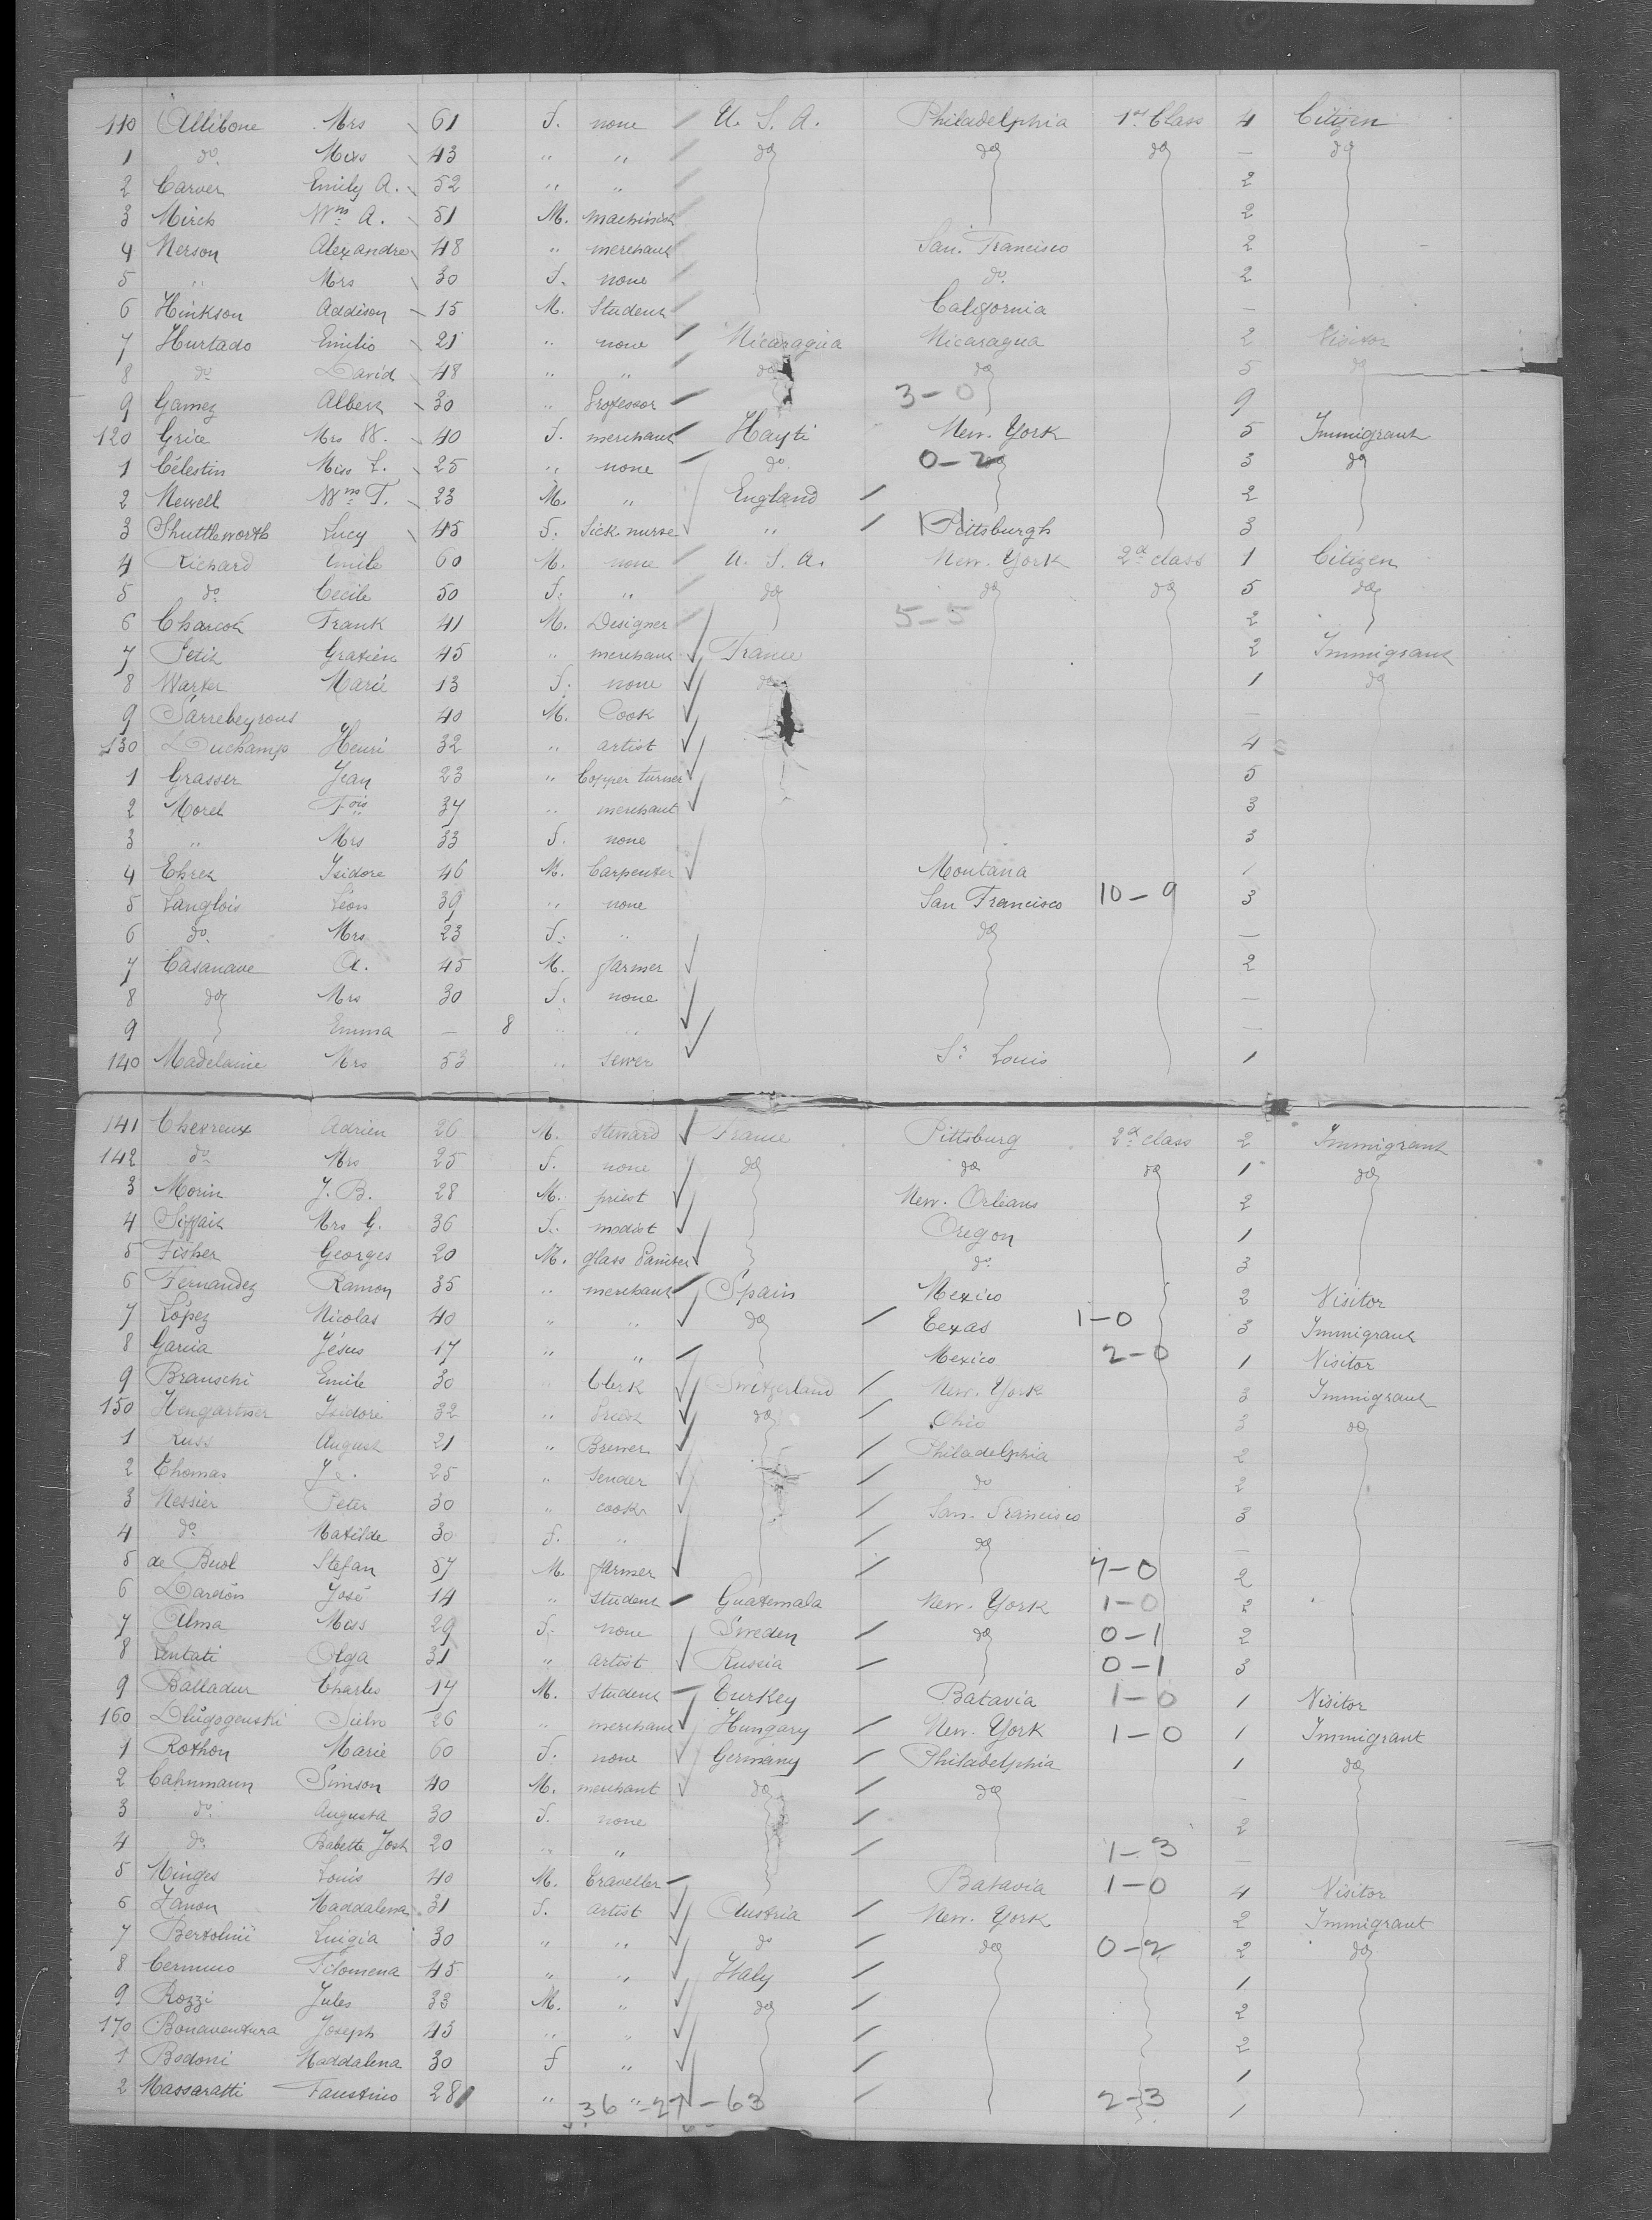 110 Allibone Mrs 61 f. none U. S. A. Philadelphia 1st Class 4 Citizen
1 do. Miss 43 " " do do do — do
2 Carver Emily A. 52 " " 2
3 Mirch Wm A. 51 M. machinist 2
4 Nerson Alexandre 48 " merchant San. Francisco 2
5 " Mrs 30 f. none do. 2
6 Hinkson Addison 15 M. Student California —
7 Hurtado Emilio 21 " none Nicaragua Nicaragua 2 Visitor
8 do David 48 " " do do 5 do
9 Gamez Albert 30 " Professor 3-0 9
120 Grice Mrs W. 40 f. merchant Hayti New. York 5 Immigrant
1 Célestin Miss L. 25 " none do. 0-2 do 3 do
2 Newell Wm T. 23 M. " England 2
3 Shuttleworth Lucy 45 f. Sick nurse " 1-1 Pittsburgh 3
4 Richard Emile 60 M. none U. S. A. New. York 2d class 1 Citizen
5 do Cecile 50 f. " do do do 5 do
6 Charcot Frank 41 M. Designer 5-5 2
7 Petit Gratien 45 " merchant France 2 Immigrant
8 Warter Marie 13 f. none do 1 do
9 Sarrebeyrous 40 M. Cook —
130 Duchamp Henri 32 " artist 4
1 Grasser Jean 23 " Copper turner 5
2 Morel Fois 37 " merchant 3
3 " Mrs 33 f. none 3
4 Ehret Isidore 46 M. Carpenter Montana 1
5 Langlois Léon 39 " none San Francisco 10-9 3
6 do. Mrs 23 f. " do —
7 Casanave A. 45 M. farmer 2
8 do Mrs 30 f. none —
9 Emma — 8 " " —
140 Madelaine Mrs 53 " sewer St Louis 1
141 Chevreux Adrien 26 M. steward France Pittsburg 2d class 2 Immigrant
142 do Mrs 25 f. none do do do 1 do
3 Morin J. B. 28 M. priest New. Orleans 2
4 Siffait Mrs G. 36 f. modist Oregon 1
5 Fisher Georges 20 M. glass Painter do. 3
6 Fernandez Ramon 35 " merchant Spain Mexico 2 Visitor
7 López Nicolas 40 " " do Texas 1-0 3 Immigrant
8 Garcia Jésus 17 " " Mexico 2-0 1 Visitor
9 Branschi Emile 30 " Clerk Switzerland New. York 3 Immigrant
150 Hengartner Isidore 32 " Priest do Ohio 3 do
1 Russ August 21 " Brewer Philadelphia 2
2 Thomas 25 " tender do 2
3 Messier Peter 30 " cook San. Francisco 3
4 do Matilde 30 f. " do —
5 de Buol Stefan 57 M. farmer 7-0 2
6 Dardón José 14 " student Guatemala New. York 1-0 2
7 Alma Miss 29 f. none Sweden do 0-1 2
8 Lentati Olga 31 " artist Russia 0-1 3
9 Balladur Charles 17 M. student Turkey Batavia 1-0 1 Visitor
160 26 " merchant Hungary New. York 1-0 1 Immigrant
1 Rothon Marie 60 f. none Germany Philadelphia 1 do
2 Cahnmann Simson 40 M. merchant do do —
3 do. Augusta 30 f. none 2
4 do. Babette Josh 20 " " 1-3 —
5 Minges Louis 40 M. Traveller Batavia 1-0 4 Visitor
6 Zanon Maddalena 31 f. artist Austria New. York 2 Immigrant
7 Bertolini Luigia 30 " " do do 0-2 2 do
8 Filomena 45 " " Italy 1
9 Rozzi Jules 33 M. " do 2
170 Bonaventura Joseph 43 " " 2
1 Bodoni Maddalena 30 f " 1
2 Massaratti Faustino 28 " " 2-3 1
36-27-63